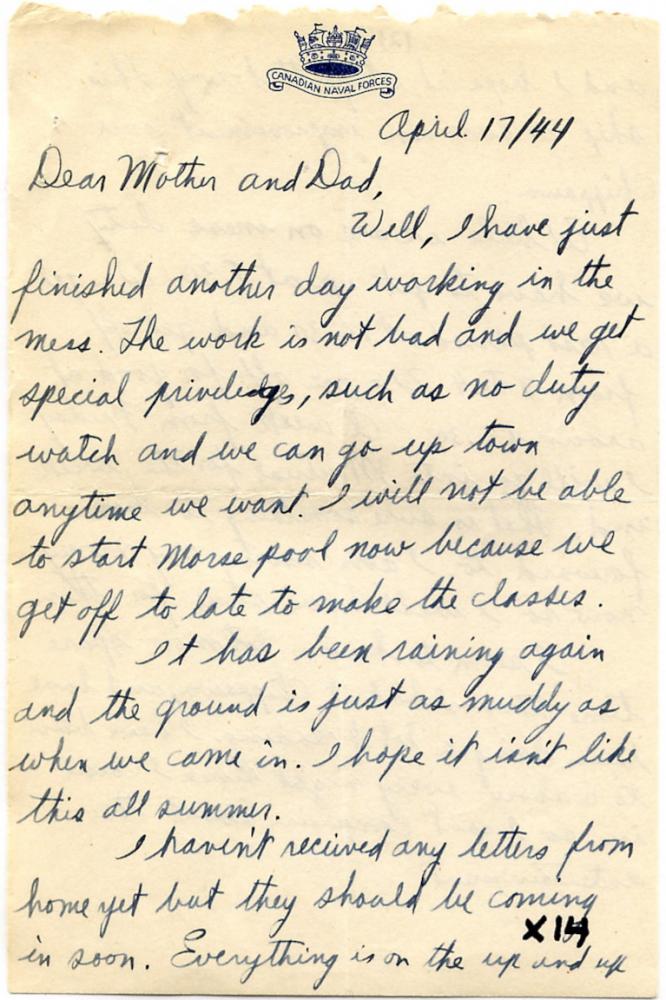 CANADIAN NAVAL FORCES
April 17/44
Dear Mother and Dad,
Well, I have just
finished another day working in the
mess. The work is not bad and we get
special priviledges, such as no duty
watch and we can go up town
anytime we want. I will not be able
to start Morse pool now because we
get off to late to make the classes.
It has been raining again
and the ground is just as muddy as
when we came in. I hope it isn't like
this all summer.
I haven't recieved any letters from
home yet but they should be coming
X14
in soon. Everything is on the up and up